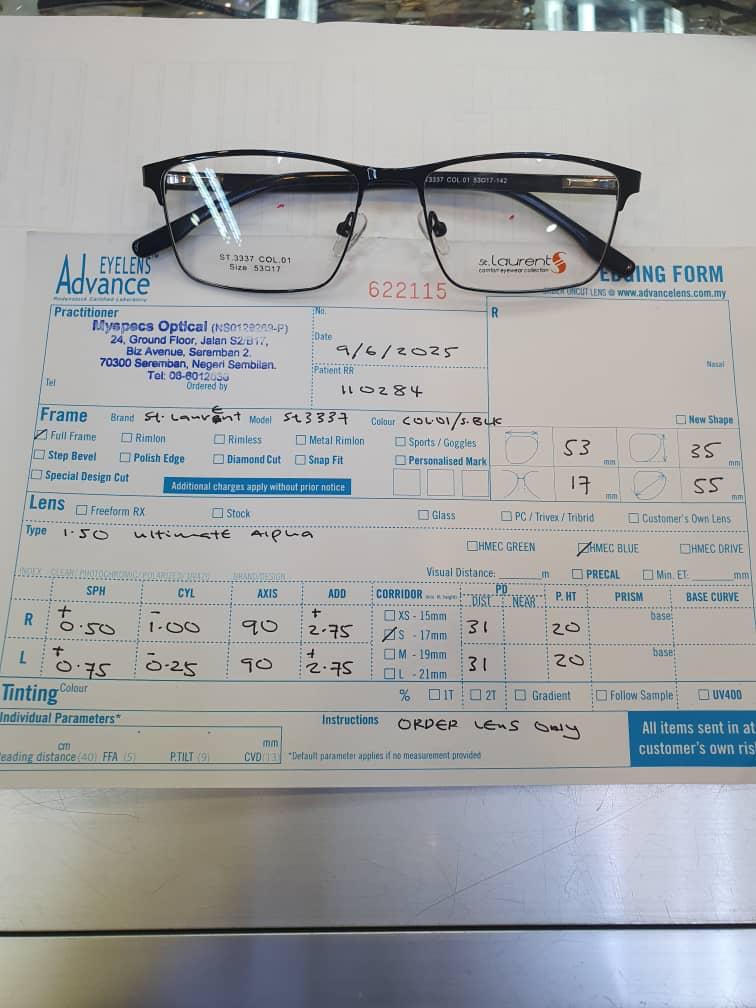 ST.3337 COL.01 53□17-142
ST.3337 COL.01
Size 53□17
St. Laurent
comfort eyewear collection
EYELENS
Advance
EDGING FORM
UNCUT LENS @ www.advancelens.com.my
622115
Practitioner
Myspecs Optical
24, Ground Floor, Jalan S2/B17,
Biz Avenue, Seremban 2.
70300 Seremban, Negeri Sembilan.
Tel
Ordered by
No.
Date 9/6/2025
Patient RR
110284
R
Nasal
Frame Brand St. Laurent Model St3337 Colour COL01/S.BLK
New Shape
Full Frame Rimlon Rimless Metal Rimlon Sports / Goggles
Step Bevel Polish Edge Diamond Cut Snap Fit Personalised Mark
Special Design Cut Additional charges apply without prior notice
53 mm 35 mm
17 mm 55 mm
Lens Freeform RX Stock Glass PC / Trivex / Tribrid Customer's Own Lens
Type 1.50 Ultimate Alpha
HMEC GREEN HMEC BLUE HMEC DRIVE
Visual Distance: m PRECAL Min. ET: mm
SPH CYL AXIS ADD CORRIDOR PD DIST NEAR P. HT PRISM BASE CURVE
R +0.50 -1.00 90 +2.75 31 20 base
L +0.75 -0.25 90 +2.75 31 20 base
XS - 15mm
S - 17mm
M - 19mm
L - 21mm
Tinting Colour % 1T 2T Gradient Follow Sample UV400
Individual Parameters*
Instructions ORDER LENS ONLY
cm mm
eading distance (40) FFA (5) P.TILT (9) CVD (13) *Default parameter applies if no measurement provided
All items sent in at
customer's own ris